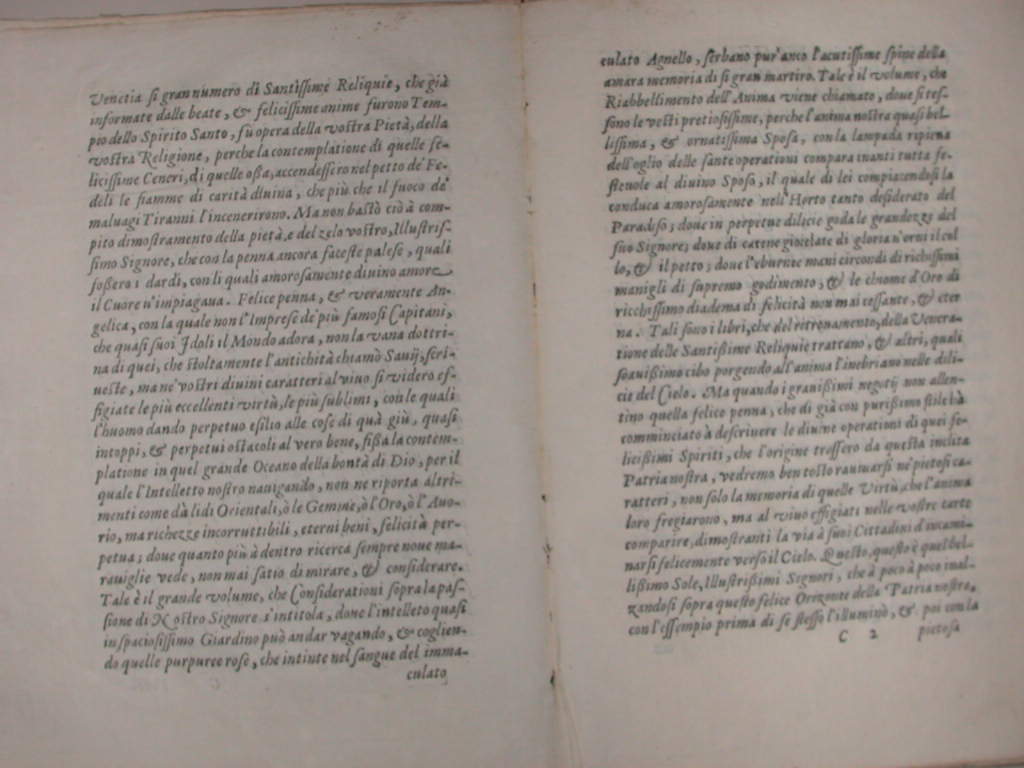 Venetia si gran numero di Santissime Reliquie, che già
informate dalle beate, & felicissime anime furono Tem-
pio dello Spirito Santo, fù opera della vostra Pietà, della
vostra Religione, perche la contemplatione di quelle fe-
licissime Ceneri, di quelle ossa, accendessero nel petto de' Fe-
deli le fiamme di carità diuina, che più che il fuoco de'
maluagi Tiranni l'incenerirono. Ma non bastò ciò à com-
pito dimostramento della pietà, e del zelo vostro, Illustris-
simo Signore, che con la penna ancora faceste palese, quali
fossero i dardi, con li quali amorosamente diuino amore
il Cuore u'impiagaua. Felice penna, & veramente An-
gelica, con la quale non l'Imprese de' più famosi Capitani,
che quasi suoi Idoli il Mondo adora, non la vana dottri-
na di quei, che stoltamente l'antichità chiamò Sauij, scri-
ueste, ma ne' vostri diuini caratteri al viuo si videro ef-
figiate le più eccellenti virtù, le più sublimi, con le quali
l'huomo dando perpetuo esilio alle cose di quà giù, quasi
intoppi, & perpetui ostacoli al vero bene, fissa la contem-
platione in quel grande Oceano della bontà di Dio, per il
quale l'Intelletto nostro nauigando, non ne riporta altri-
menti come dà lidi Orientali, ò le Gemme, ò l'Oro, ò l'Auo-
rio, ma richezze incorruttibili, eterni beni, felicità per-
petua; doue quanto più à dentro ricerca sempre noue ma-
rauiglie vede, non mai satio di mirare, & considerare.
Tale è il grande volume, che Considerationi sopra la pas-
sione di Nostro Signore s'intitola, doue l'intelleto quasi
in spaciosissimo Giardino può andar vagando, & coglien-
do quelle purpuree rose, che intinte nel sangue del imma-
culato
culato Agnello, serbano pur'anco l'acutissime spine della
amara memoria di si gran martiro. Tale è il volume, che
Riabbellimento dell'Anima viene chiamato, doue si tes-
sono le vesti pretiosissime, perche l'anima nostra quasi bel-
lissima, & ornatissima Sposa, con la lampada ripiena
dell'oglio delle sante operationi compara inanti tutta fe-
steuole al diuino Sposo, il quale di lei compiacendosi la
conduca amorosamente nell'Horto tanto desiderato del
Paradiso; doue in perpetue dilicie goda le grandezze del
suo Signore; doue di catene gioielate di gloria n'orni il col
lo, & il petto; doue l'eburnee mani circondi di richissimi
manigli di supremo godimento, & le chiome d'Oro di
ricchissimo diadema di felicità non mai cessante, & eter
na. Tali sono i libri, che del ritrouamento, della Venera-
tione delle Santissime Reliquie trattano, & altri, quali
soauissimo cibo porgendo all'anima l'inebriano nelle dili-
cie del Cielo. Ma quando i grauissimi negotij non allen-
tino quella felice penna, che di già con purissimo stile hà
comminciato à descriuere le diuine operationi di quei fe-
licissimi Spiriti, che l'origine trassero da questa inclita
Patria nostra, vedremo ben tosto rauiuarsi ne' pietosi ca-
ratteri, non solo la memoria di quelle Virtù, che l'anima
loro fregiarono, ma al viuo effigiati nelle vostre carte
comparire, dimostranti la via à suoi Cittadini d'incami-
narsi felicemente verso il Cielo. Questo, questo è quel bel-
lissimo Sole, Illustrissimi Signori, che à poco à poco inal-
zandosi sopra questo felice Orizonte della Patria nostra,
con l'essempio prima di se stesso l'illuminò, & poi con la
C 2 pietosa